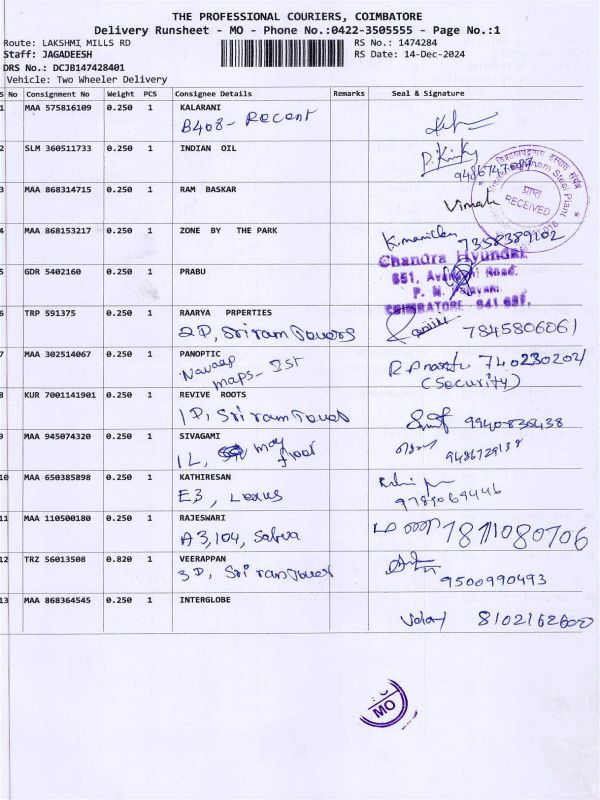 THE PROFESSIONAL COURIERS, COIMBATORE
Delivery Runsheet - MO - Phone No.:0422-3505555 - Page No.:1
Route: LAKSHMI MILLS RD RS No.: 1474284
Staff: JAGADEESH RS Date: 14-Dec-2024
DRS No.: DCJB147428401
Vehicle: Two Wheeler Delivery
S No Consignment No Weight PCS Consignee Details Remarks Seal & Signature
1 MAA 575816109 0.250 1 KALARANI
B408- Recent
2 SLM 360511733 0.250 1 INDIAN OIL
9486747087
3 MAA 868314715 0.250 1 RAM BASKAR
Vimala
RECEIVED
Steel Plant
4 MAA 868153217 0.250 1 ZONE BY THE PARK
7358389102
Chandra Hyundai
5 GDR 5402160 0.250 1 PRABU
851, Road.
P. N.
COIMBATORE
6 TRP 591375 0.250 1 RAARYA PRPERTIES
2D, Sriram Towers 7845806061
7 MAA 302514067 0.250 1 PANOPTIC
maps- 1st
7402302021
(Security)
8 KUR 7001141901 0.250 1 REVIVE ROOTS
1P, Sri ram Towers 9940836438
9 MAA 945074320 0.250 1 SIVAGAMI
1L, may floor 9486729138
10 MAA 650385898 0.250 1 KATHIRESAN
E3, Lexus 9789069446
11 MAA 110500180 0.250 1 RAJESWARI
A3,104, Sabva
12 TRZ 56013508 0.820 1 VEERAPPAN
3D, Sri ram Tower 9500990493
13 MAA 868364545 0.250 1 INTERGLOBE
8102162600
MO